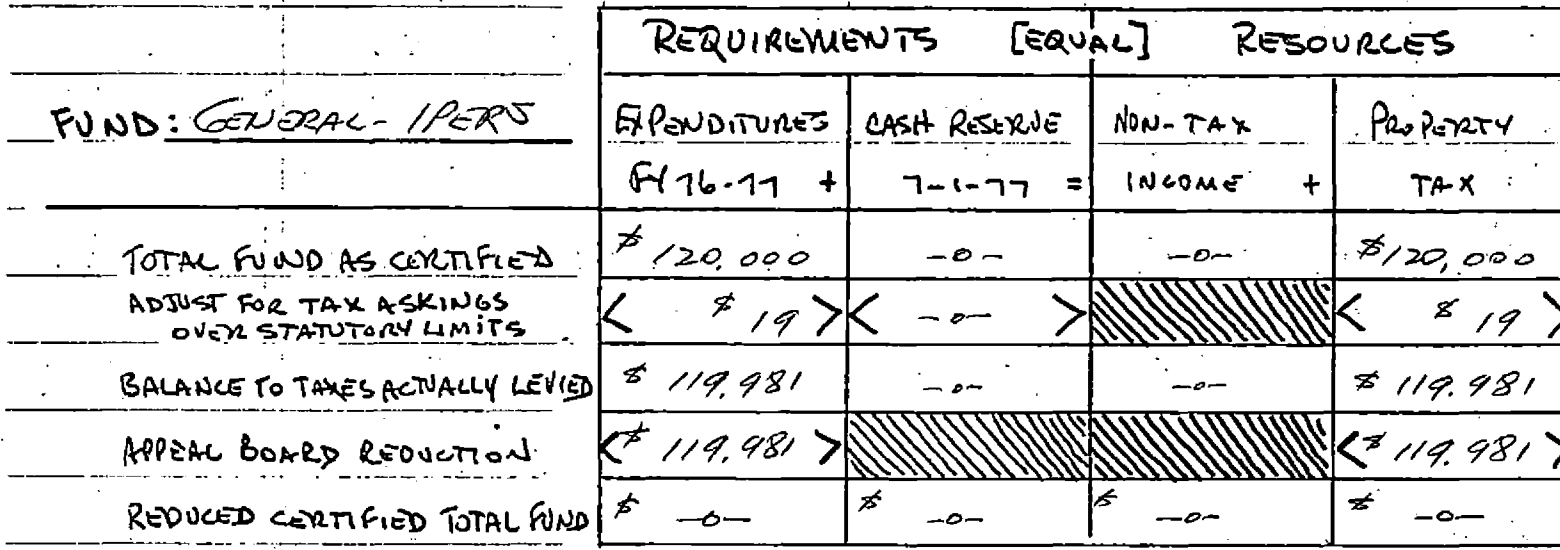 REQUIREMENTS [EQUAL] RESOURCES
FUND: GENERAL - IPERS EXPENDITURES CASH RESERVE NON-TAX PROPERTY
FY 76-77 + 7-1-77 = INCOME + TAX
TOTAL FUND AS CERTIFIED $ 120,000 -0- -0- $120,000
ADJUST FOR TAX ASKINGS
OVER STATUTORY LIMITS. < $ 19 > < -0- > < $ 19 >
BALANCE TO TAXES ACTUALLY LEVIED $ 119.981 -0- -0- $ 119.981
APPEAL BOARD REDUCTION <$ 119.981 > <$ 119.981 >
REDUCED CERTIFIED TOTAL FUND $ -0- $ -0- $ -0- $ -0-